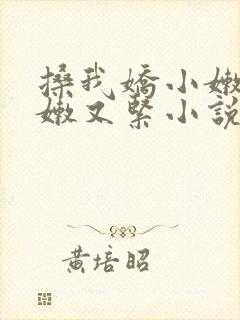 搡我嬌小嫩
嫩又緊小說
黃培昭